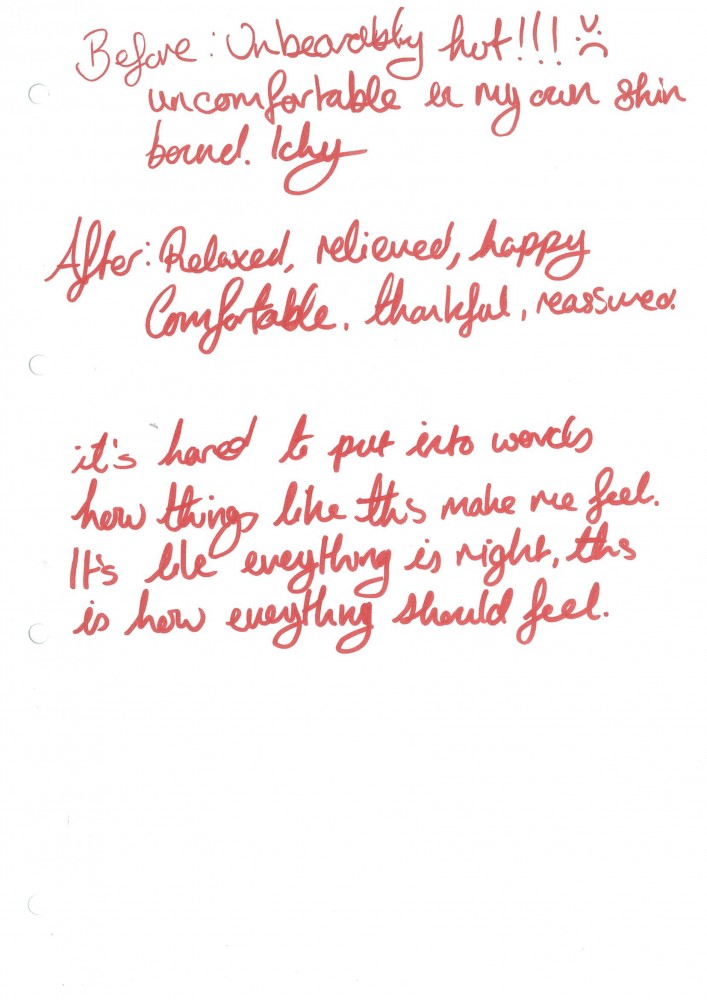 Before: Unbearably hot!!! :(
uncomfortable in my own skin
bound. Ichy
After: Relaxed, relieved, happy
Comfortable, thankful, reassured.
it's hard to put into words
how things like this make me feel.
It's like eveything is right, this
is how eveything should feel.